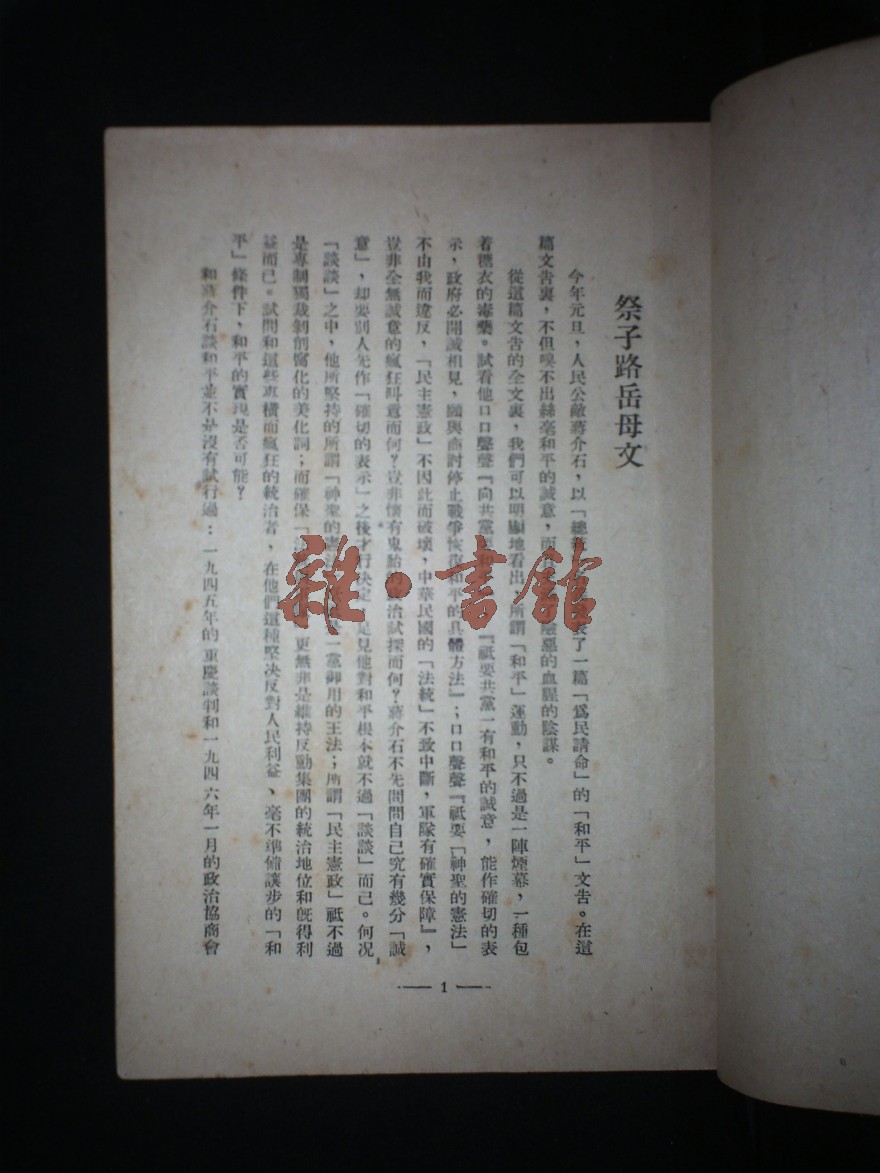 祭子路岳母文
今年元旦，人民公敵蔣介石，以「總表了一篇「爲民請命」的「和平」文告。在這
篇文告裏，不但嗅不出絲毫和平的誠意，而惡的血腥的陰謀。
從這篇文告的全文裏，我們可以明顯地看出，所謂「和平」運動，只不過是一陣煙幕，一種包
着糖衣的毒藥。試看他口口聲聲『向共黨『祇要共黨一有和平的誠意，能作確切的表
示，政府必開誠相見，願與商討停止戰爭恢復和平的具體方法』；口口聲聲『祇要「神聖的憲法」
不由我而違反，「民主憲政」不因此而破壞，中華民國的「法統」不致中斷，軍隊有確實保障』，
豈非全無誠意的瘋狂叫囂而何？豈非懷有鬼胎的政治試探而何？蔣介石不先問問自己究有幾分「誠
意」，却要別人先作「確切的表示」之後才行決定，足見他對和平根本就不過「談談」而已。何况
「談談」之中，他所堅持的所謂「神聖的憲法一黨御用的王法；所謂「民主憲政」祇不過
是專制獨裁剝削腐化的美化詞；而確保「法更無非是維持反動集團的統治地位和旣得利
益而已。試問和這些專橫而瘋狂的統治者，在他們這種堅决反對人民利益、毫不準備讓步的「和
平」條件下，和平的實現是否可能？
和蔣介石談和平並不是沒有試行過：一九四五年的重慶談判和一九四六年一月的政治協商會
— 1 —
雜·書館